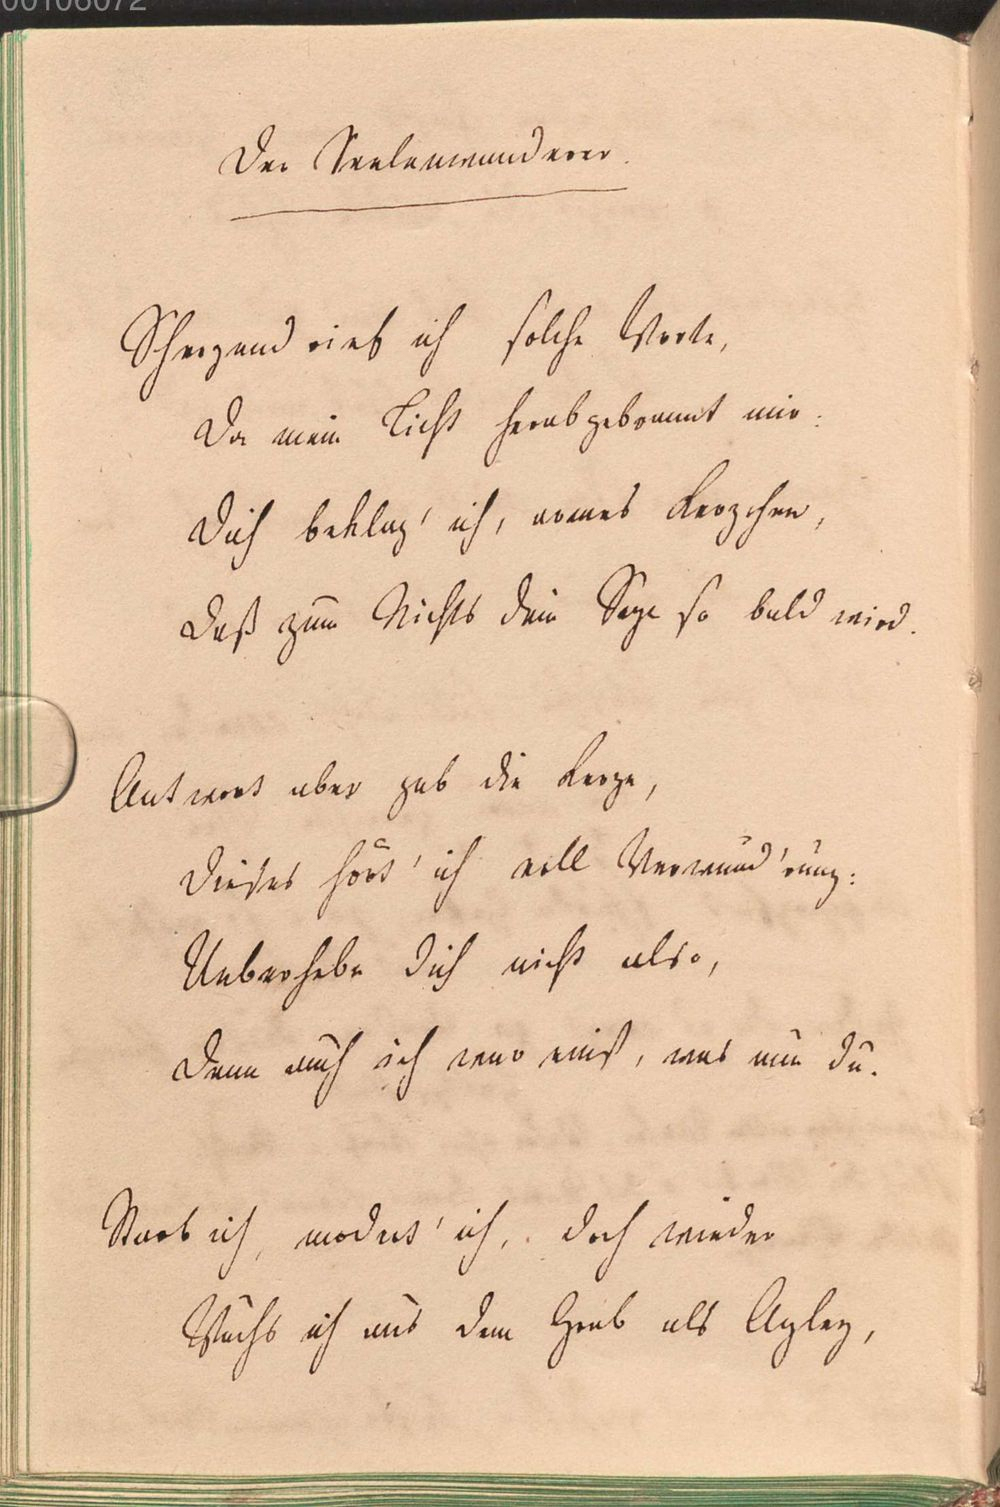 00106072
Der Seelenwanderer.
Scherzend rief ich solche Worte,
Da mein Licht herabgebrannt mir:
Dich beklag' ich, armes Kerzchen,
Daß zum Nichts dein so bald wird.
Antwort aber gab die Kerze,
Dieses hört' ich voll Verwund'rung:
Ueberhebe dich nicht also,
Denn auch ich war einst, was nun du.
Starb ich, modert' ich, doch wieder
Wuchs ich aus dem Grab als Agley,